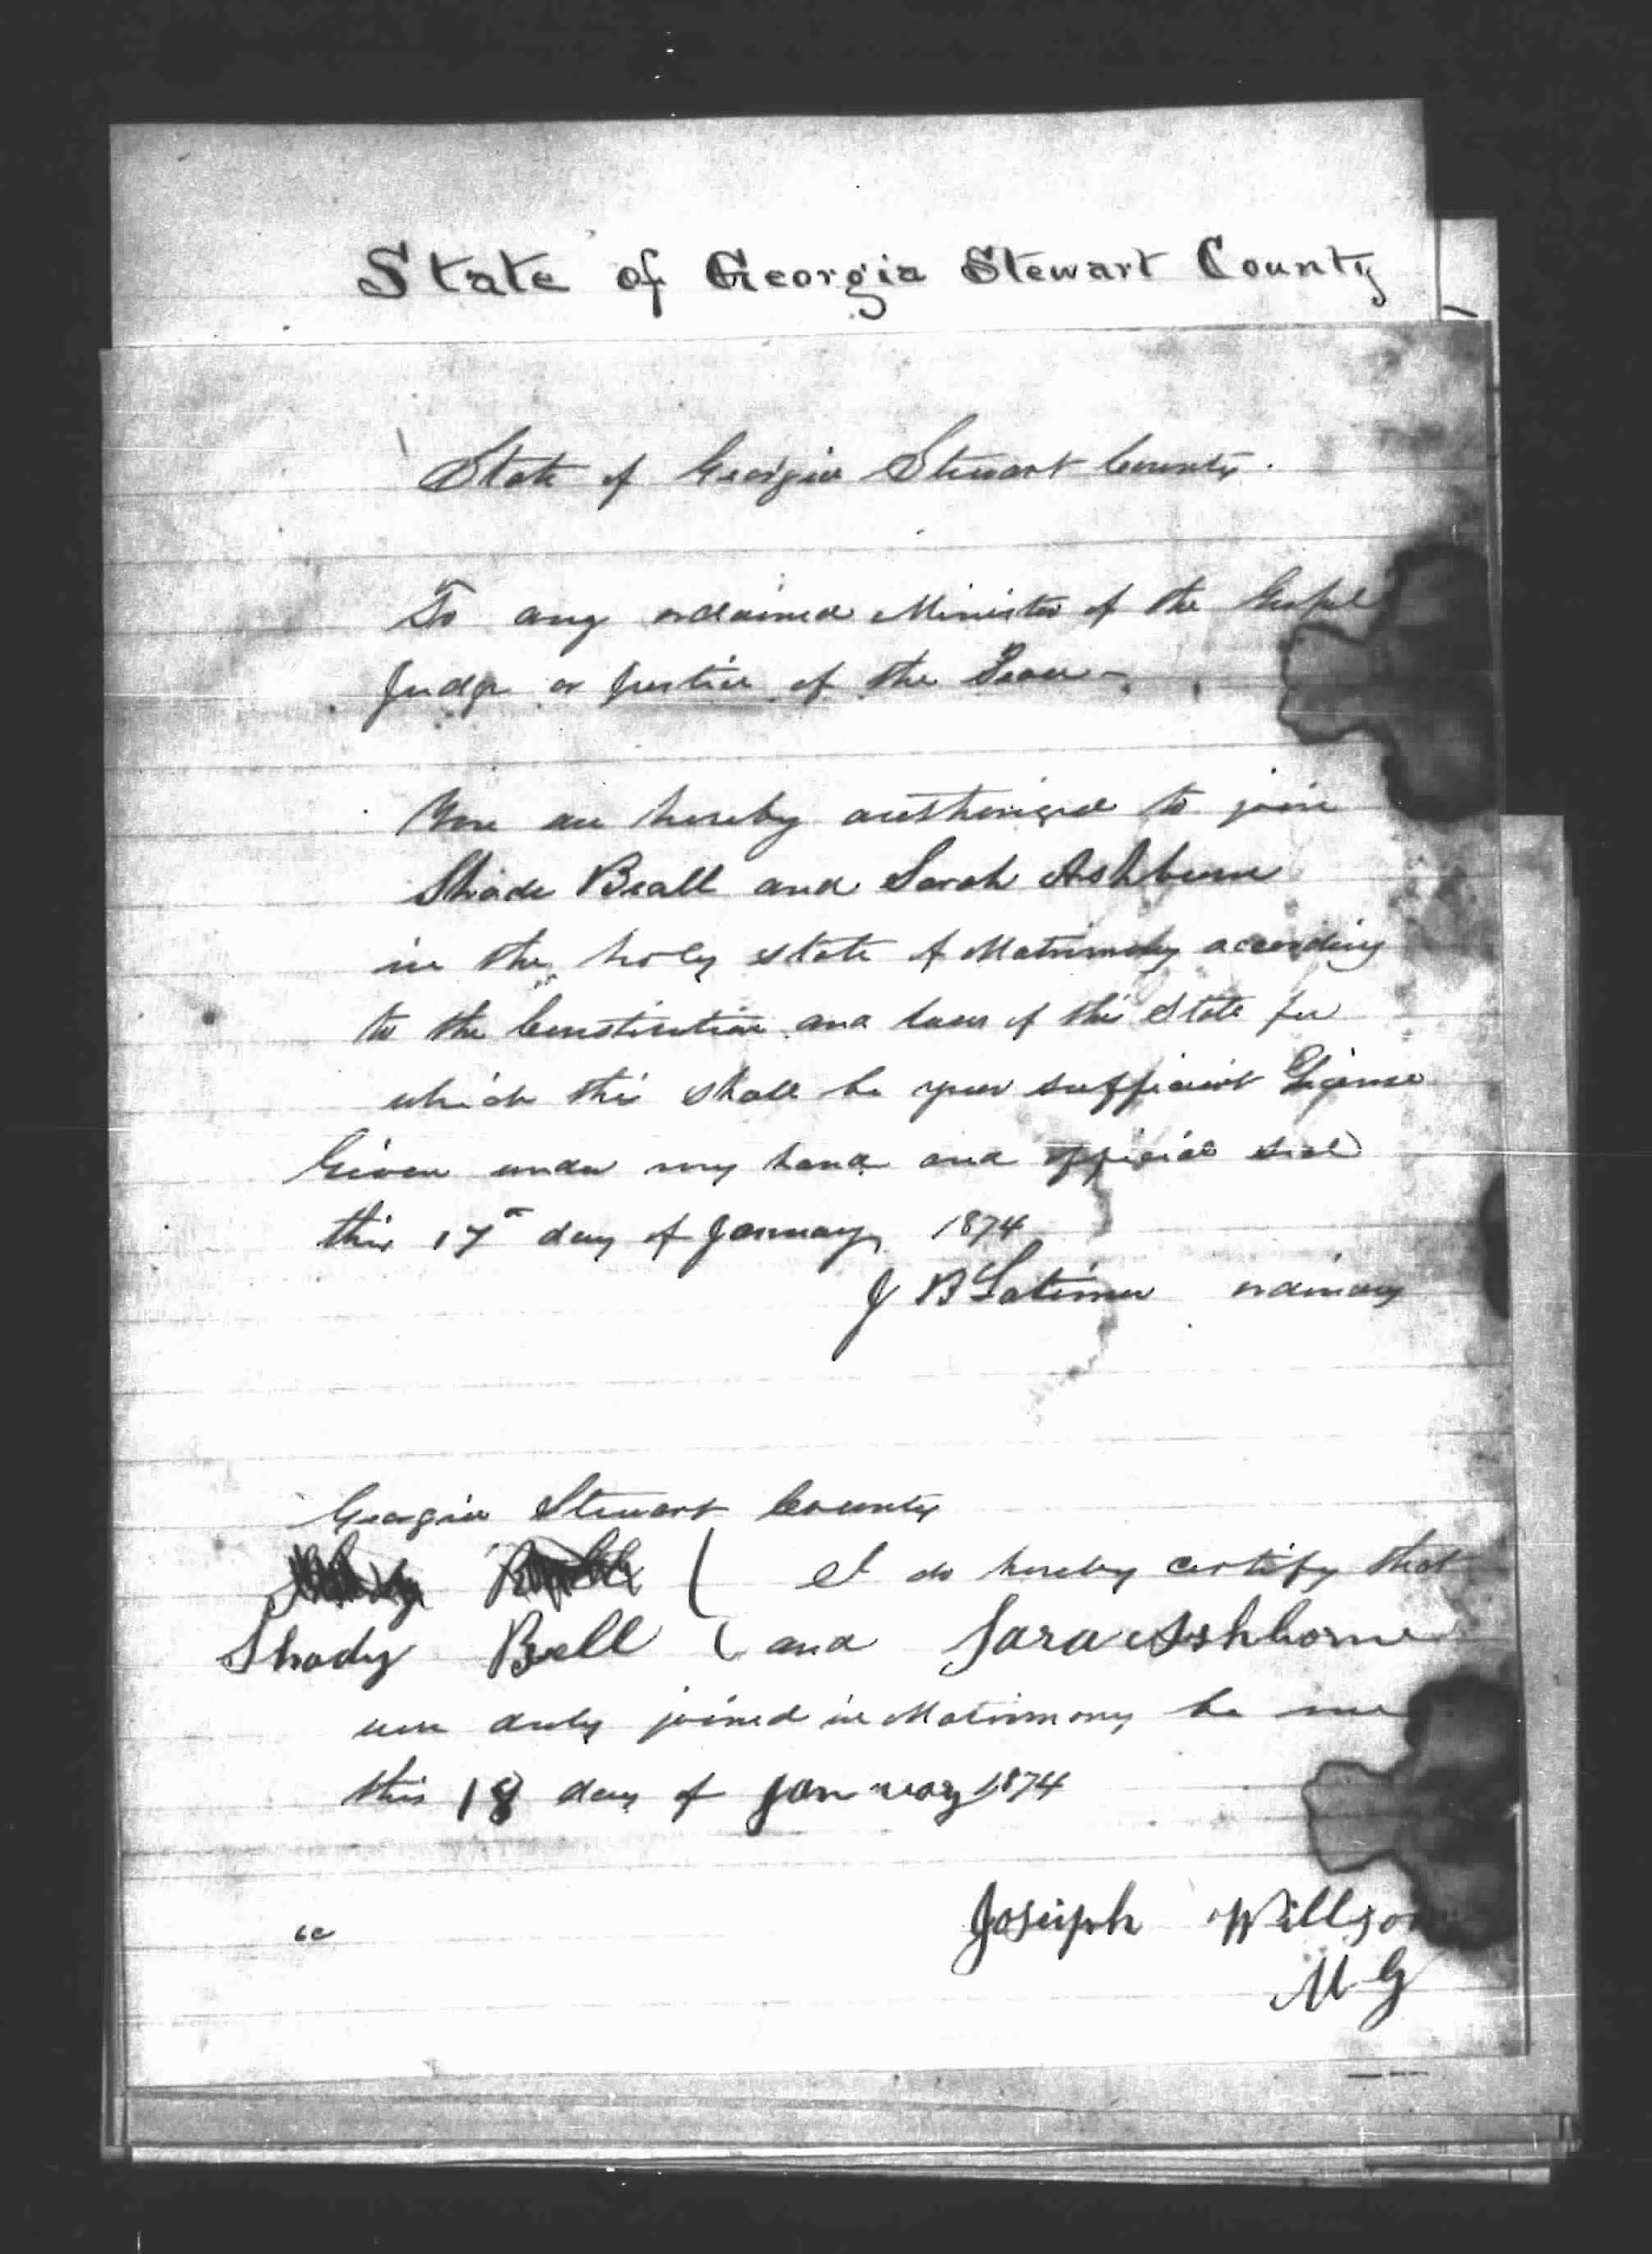 State of Georgia Stewart County
State of Georgia Stewart County.
To any ordained Minister of the Gospel
Judge or Justice of the Peace -
You are hereby authorized to join
Shade Beall and Sarah Ashburn
in the holy state of Matrimony according
to the Constitution and laws of this State for
which this shall be your sufficient License
Given under my hand and official seal
this 17th day of January 1874
J B Latimer ordinary
Georgia Stewart County
I do hereby certify that
Shady Bell and Sara Ashborne
were duly joined in Matrimony be me
this 18 day of January 1874
Joseiph Willson
M G